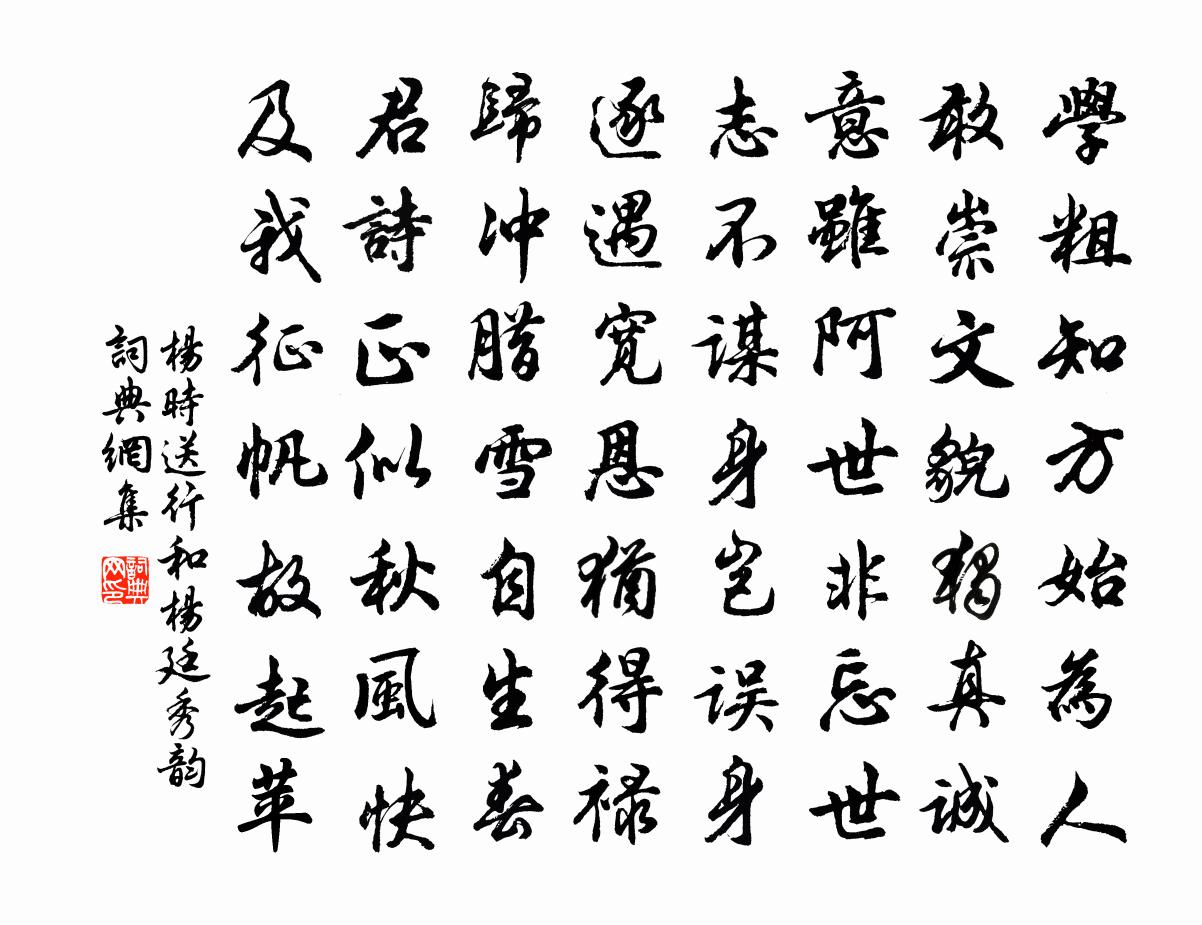 學粗知方始為人
敢崇文貌獨真誠
意雖阿世非忘世
志不謀身豈误身
逐遇寛恩猶得禄
歸冲腊雪自生春
君詩正似秋風快
及我征帆故起苹
楊時送行和楊廷秀韵
詞典網集
詞典网印